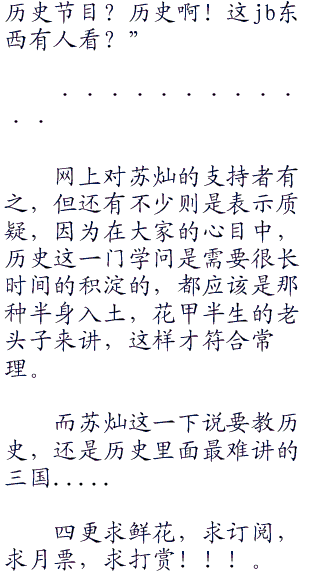 历史节目？历史啊！这jb东
西有人看？”
．．．．．．．．．．
．．
网上对苏灿的支持者有
之，但还有不少则是表示质
疑，因为在大家的心目中，
历史这一门学问是需要很长
时间的积淀的，都应该是那
种半身入土，花甲半生的老
头子来讲，这样才符合常
理。
而苏灿这一下说要教历
史，还是历史里面最难讲的
三国.....
四更求鲜花，求订阅，
求月票，求打赏！！！。